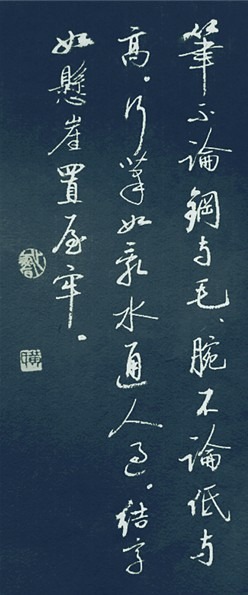 筆不論鋼与毛、腕不論低与
高。行筆如亂水通人過。結字
如懸崖置屋牢。